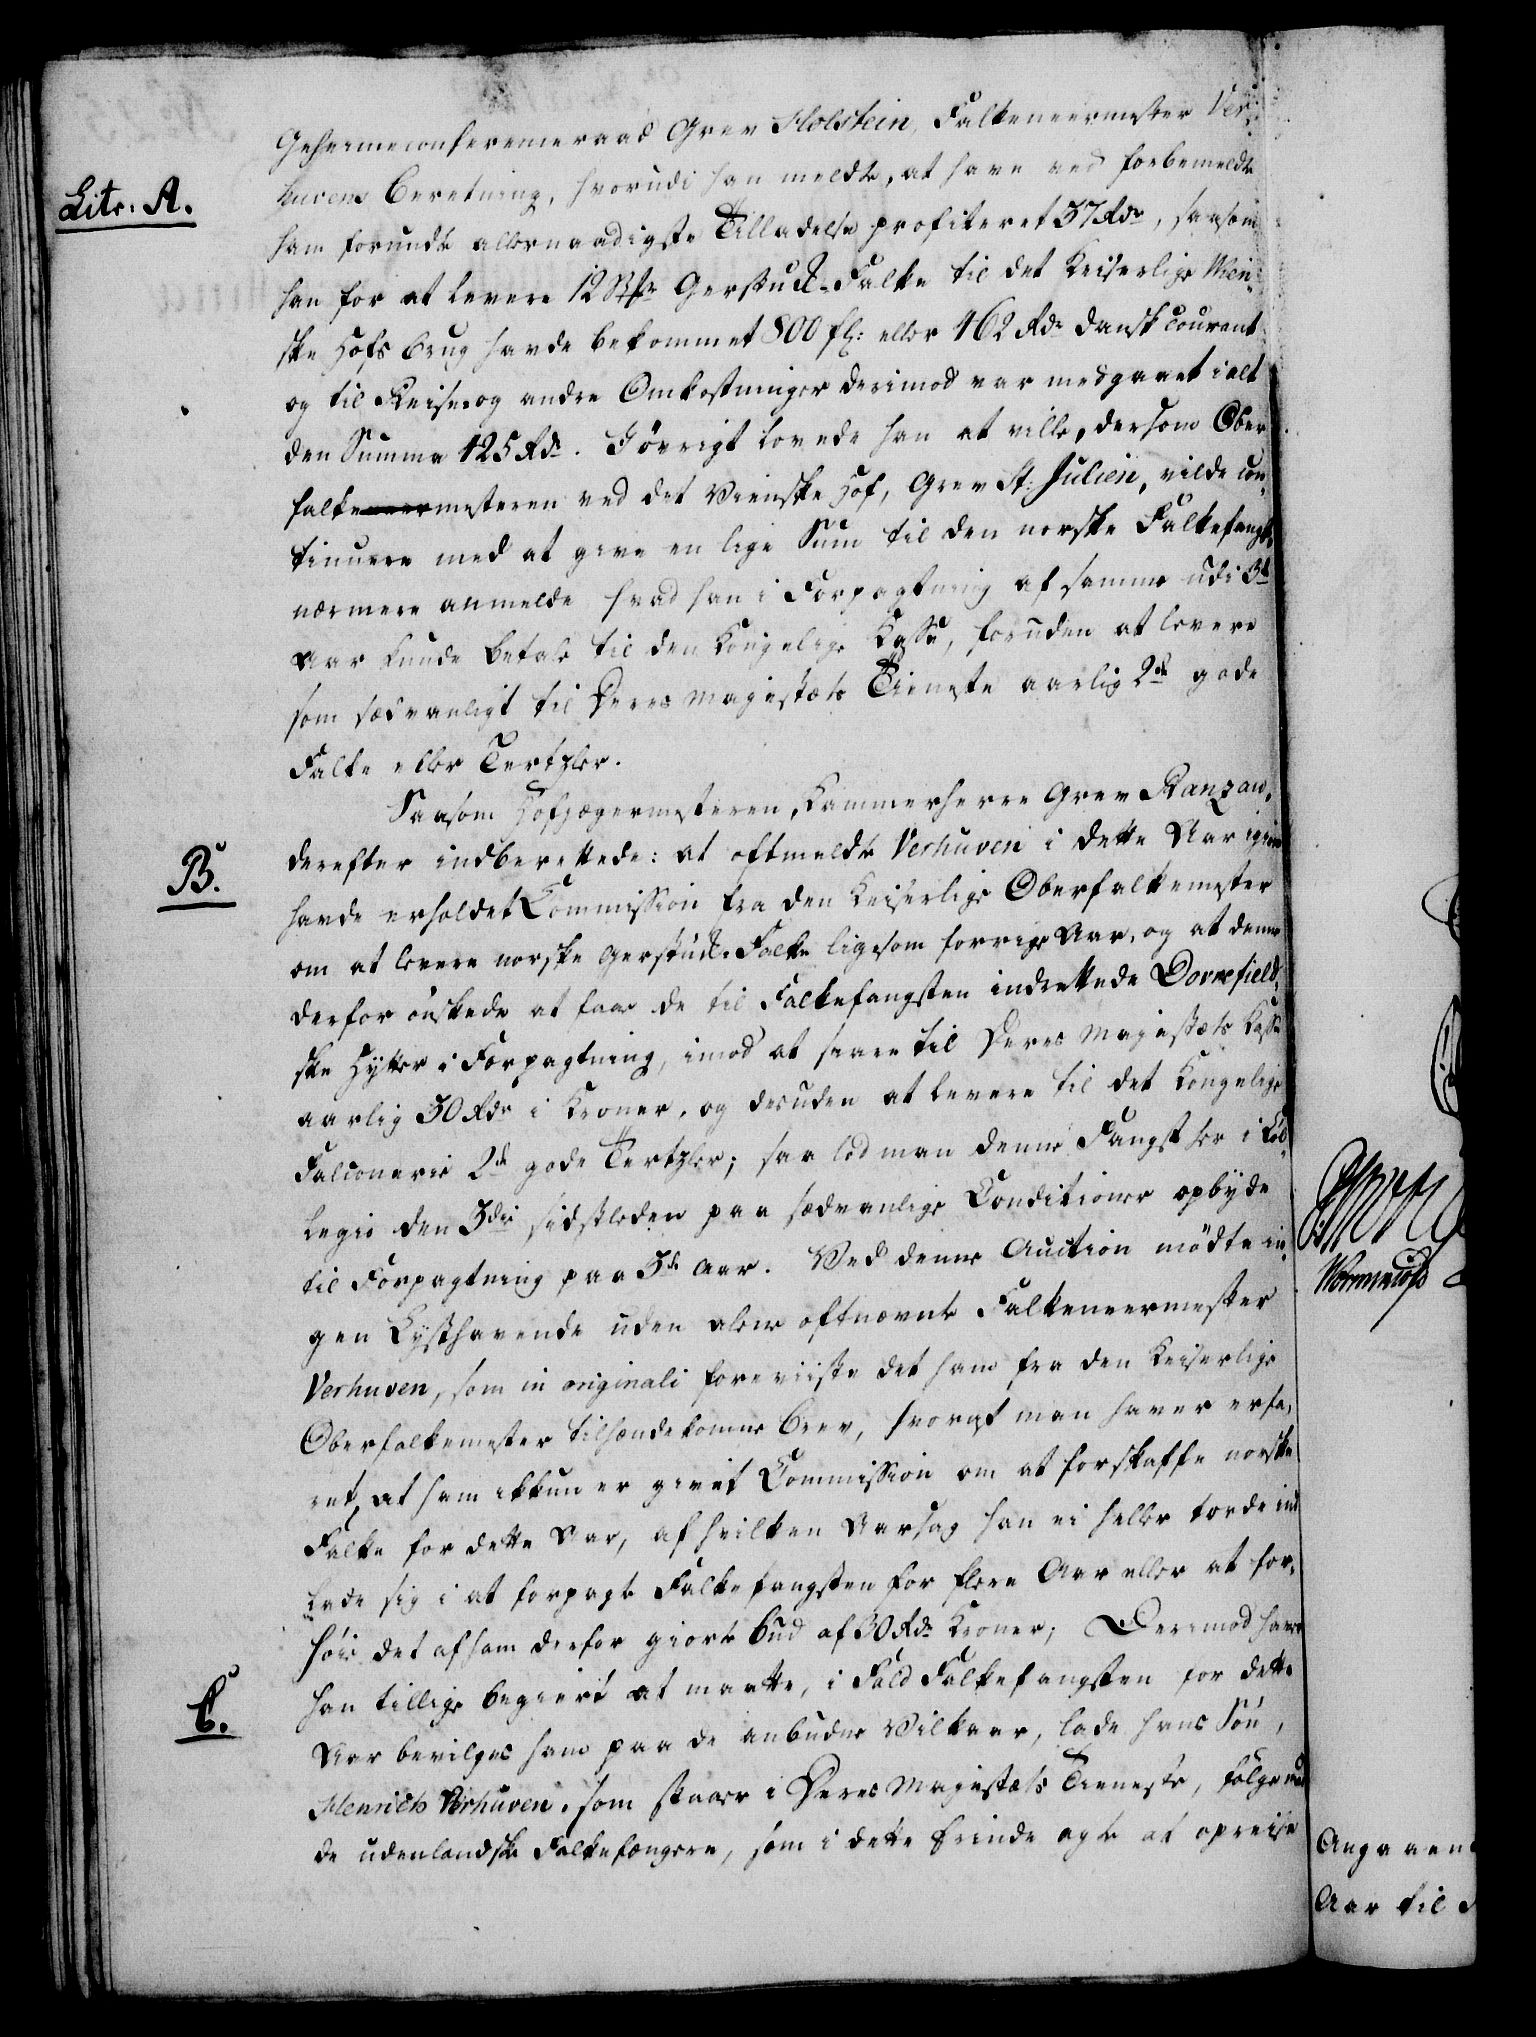 Geheimeconferenceraad Grev Holstein, Falkeneermester Ver-
Litr. A.
huvens Beretning, hvorudi han meldte, at have ved forbemeldte
ham forundte allernaadigste Tilladelse profiteret 37 Rdr, saasom
han for at levere 12 Gerfuct-Falke til det Keiserlige Wien-
ske Hofs Brug havde bekommet 800 fl: eller 462 Rdr dansk Courant
og til Reise og andre Omkostninger derimod var medgaaet i alt
den Summa 425 Rdr. I øvrigt lovede han at ville, dersom Ober-
falkemesteren ved det Vienske Hof, Grev St. Julien, vilde con-
tinuere med at give en lige Sum til den norske Falkefangst,
nærmere anmelde hvad han i Forpagtning af samme udi 3de
Aar kunde betale til den Kongelige Kasse, foruden at levere
som sædvanligt til Deres Majestæts Tieneste aarlig 2de gode
Falke eller Tertzler.
Saasom Hofjægermesteren, Kammerherre Grev Ranzau,
B.
derefter indberettede: at oftmeldte Verhuven i dette Aar igien
havde erholdet Commission fra den Keiserlige Oberfalkemester
om at levere norske Falke ligesom forrige Aar, og at denne
derfor ønskede at faae de til Falkefangsten indrettede Dovrefield-
ske Hytter i Forpagtning, imod at svare til Deres Majestæts Kasse
aarlig 30 Rdr i Kroner, og desuden at levere til det Kongelige
Falconerie 2de gode Tertzler; saa lod man denne Fangst her i Col-
legio den 3die sidstleden paa sædvanlige Conditioner opbyde
til Forpagtning paa 3de Aar. Ved denne Auction mødte in-
gen Lysthavende uden alene oftnævnte Falkeneermester
Verhuven, som in originali foreviiste det ham fra den Keiserlige
Oberfalkemester tilhændekomne Brev, hvoraf man haver erfa-
ret, at ham ikkun er givet Commission om at forskaffe norske
Falke for dette Aar, af hvilken Aarsag han ei heller torde ind
lade sig i at forpagte Falkefangsten for flere Aar eller at for-
høie det af ham derfor giorte Bud af 30 Rdr Kroner; Derimod haver
C.
han tillige begiert at maatte, i Fald Falkefangsten for dette
Aar bevilges ham paa de anbudne Vilkaar, lade hans Søn,
Henrich Verhuven, som staaer i Deres Majestæts Tieneste, følge med
de udenlandske Falkefængere, som i dette Ærinde agte at opreise
Angaaen
Aar til